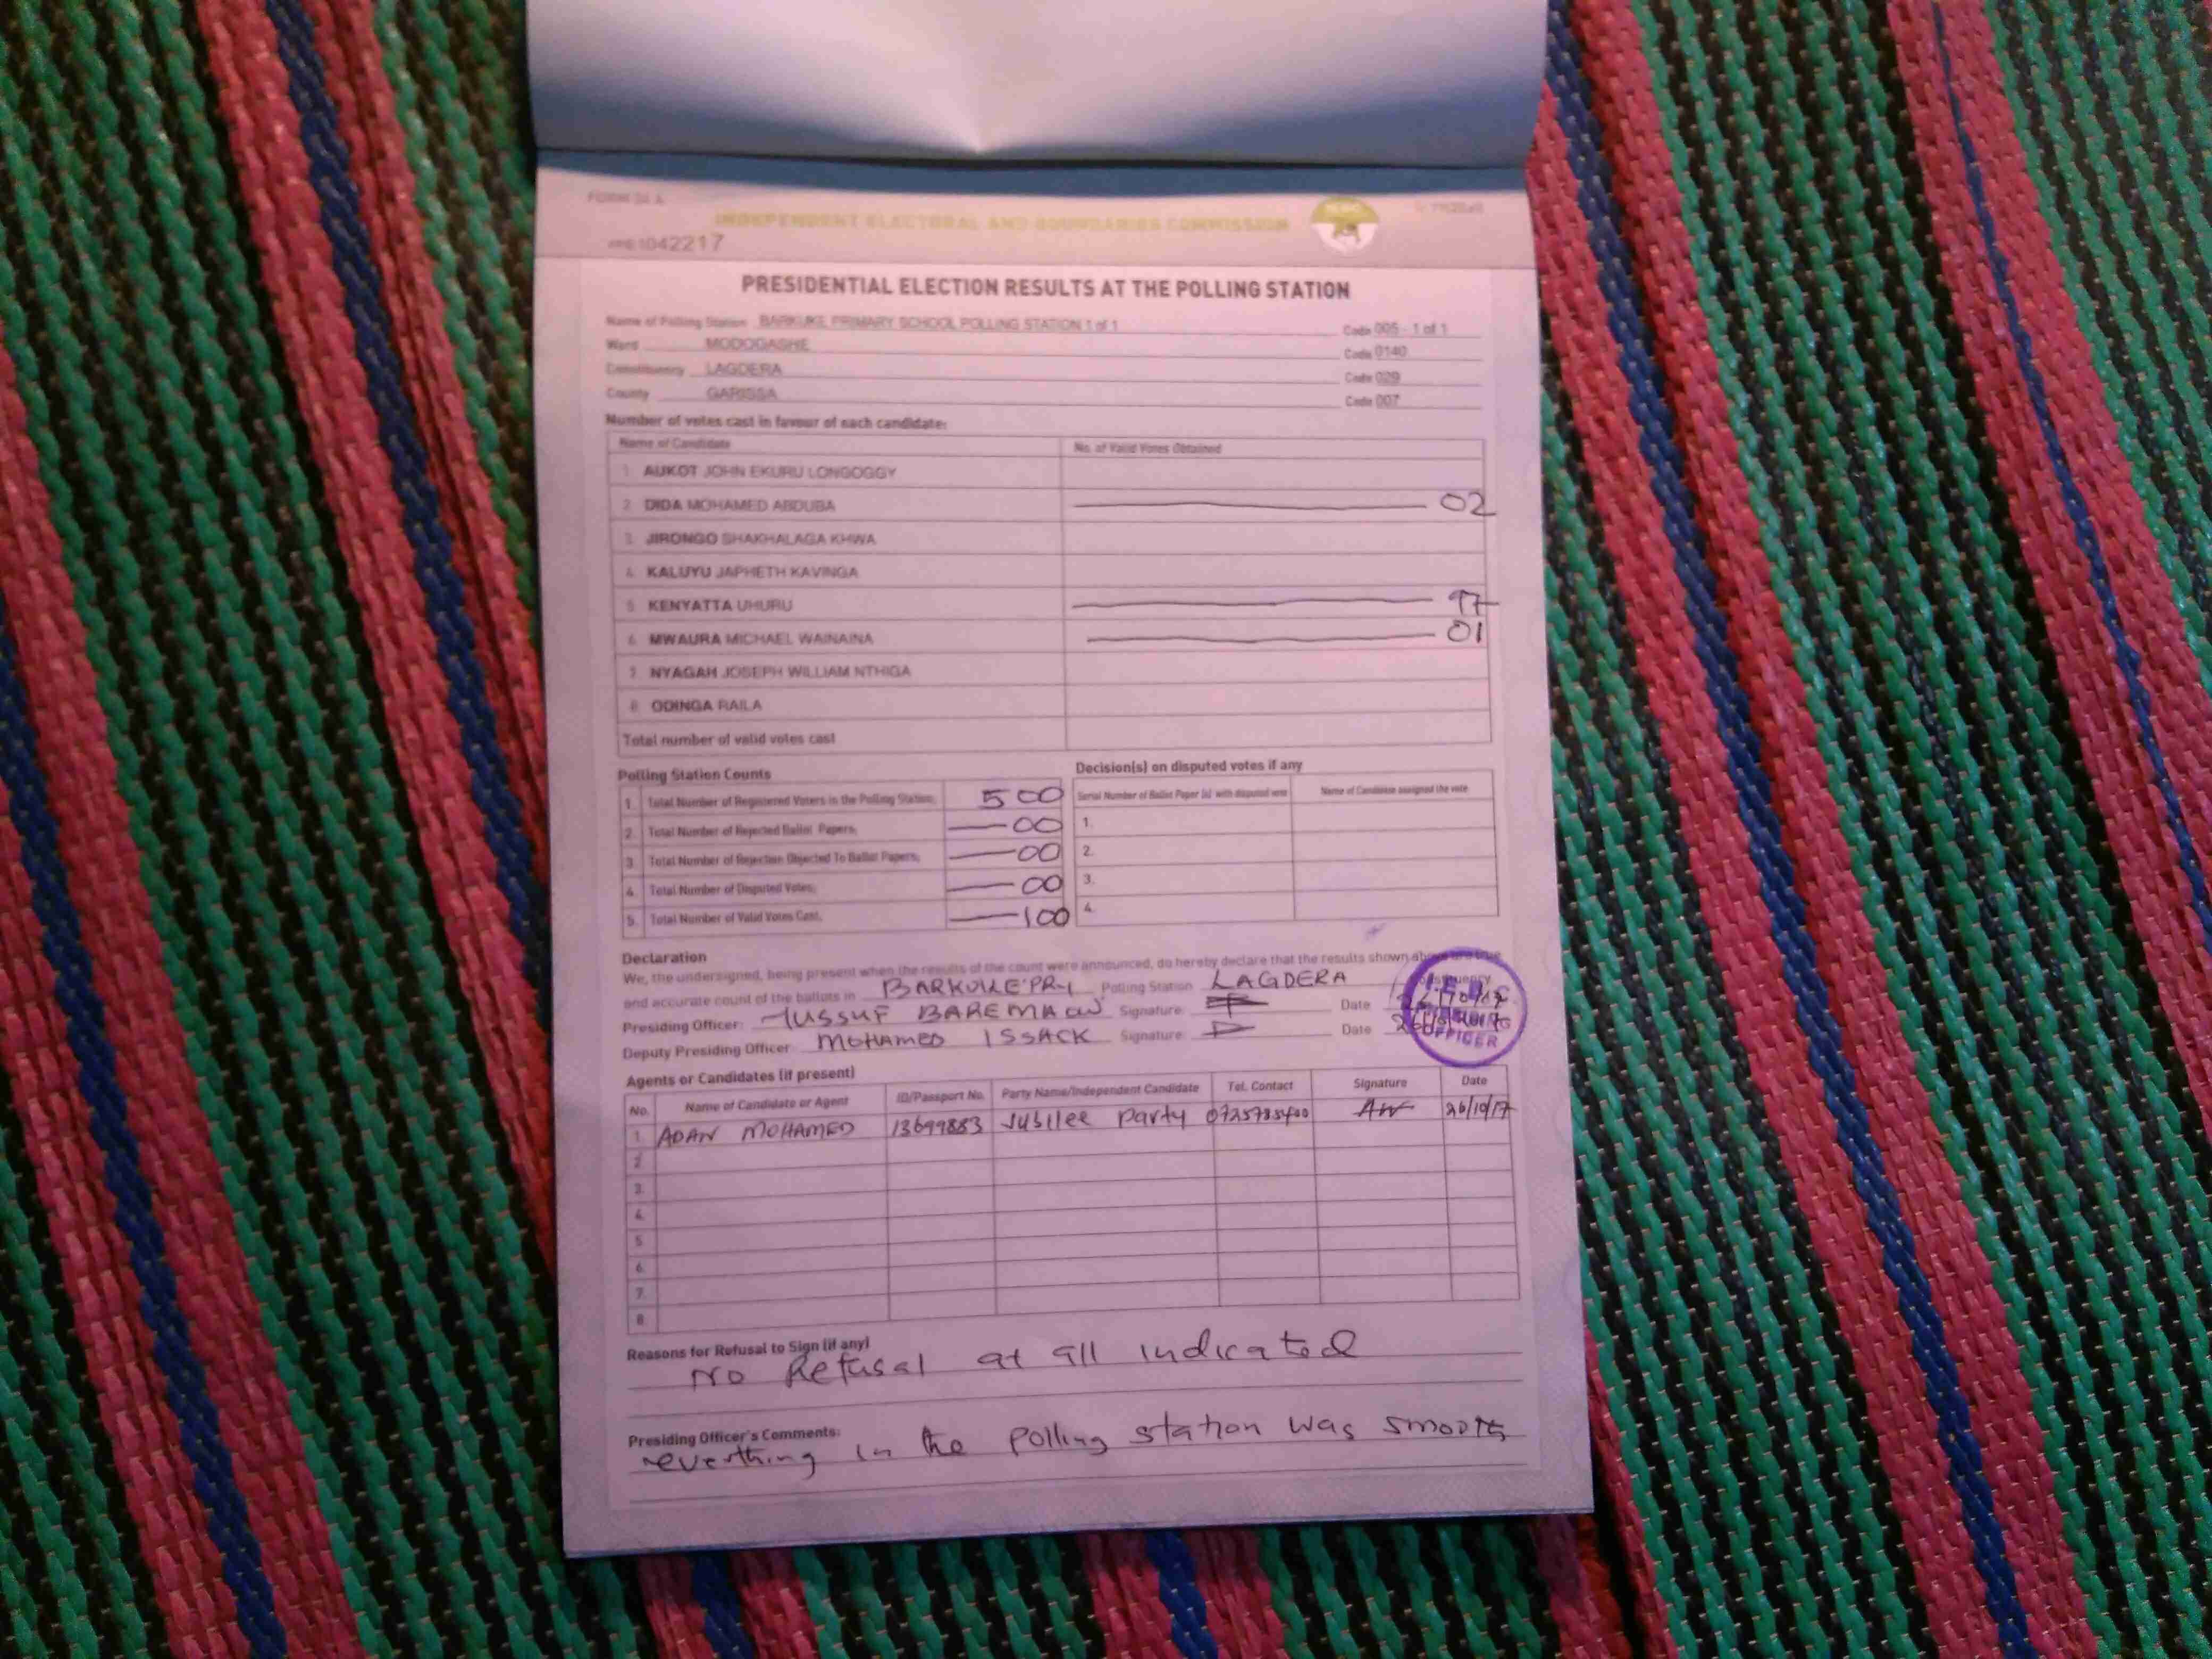 FORM 34 A
INDEPENDENT ELECTORAL AND BOUNDARIES COMMISSION
042217
PRESIDENTIAL ELECTION RESULTS AT THE POLLING STATION
Name of Polling Station BARKUKE PRIMARY SCHOOL POLLING STATION 1 of 1 Code 005 - 1 of 1
Ward MODOGASHE Code 0140
Constituency LAGDERA Code 029
County GARISSA Code 007
Number of votes cast in favour of each candidate:
Name of Candidate No. of Valid Votes Obtained
1. AUKOT JOHN EKURU LONGOGGY
2. DIDA MOHAMED ABDUBA 02
3. JIRONGO SHAKHALAGA KHWA
4. KALUYU JAPHETH KAVINGA
5. KENYATTA UHURU 97
6. MWAURA MICHAEL WAINAINA 01
7. NYAGAH JOSEPH WILLIAM NTHIGA
8. ODINGA RAILA
Total number of valid votes cast
Polling Station Counts
1. Total Number of Registered Voters in the Polling Station; 500
2. Total Number of Rejected Ballot Papers; 00
3. Total Number of Rejection Objected To Ballot Papers; 00
4. Total Number of Disputed Votes; 00
5. Total Number of Valid Votes Cast; 100
Decision(s) on disputed votes if any
Serial Number of Ballot Paper (s) with disputed vote Name of Candidate assigned the vote
1.
2.
3.
4.
Declaration
We, the undersigned, being present when the results of the count were announced, do hereby declare that the results shown above are true
and accurate count of the ballots in BARKUKE PRY Polling Station LAGDERA Constituency
Presiding Officer: YUSSUF Signature: Date
Deputy Presiding Officer: MOHAMED ISSACK Signature: Date
OFFICER
Agents or Candidates (if present)
No. Name of Candidate or Agent ID/Passport No. Party Name/Independent Candidate Tel. Contact Signature Date
1. ADAN MOHAMED 13699883 Jubilee Party 26/10/17
2.
3.
4.
5.
6.
7.
8.
Reasons for Refusal to Sign (if any)
No Refusal at all indicated
Presiding Officer's Comments:
everthing in the Polling station was smooth